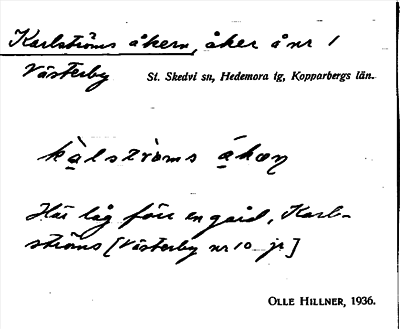 Karlströms åkern, åker å nr 1
Västerby St. Skedvi sn, Hedemora tg, Kopparbergs län.
Här låg förr en gård, Karl-
ströms [Västerby nr 10 jr]
OLLE HILLNER, 1936.